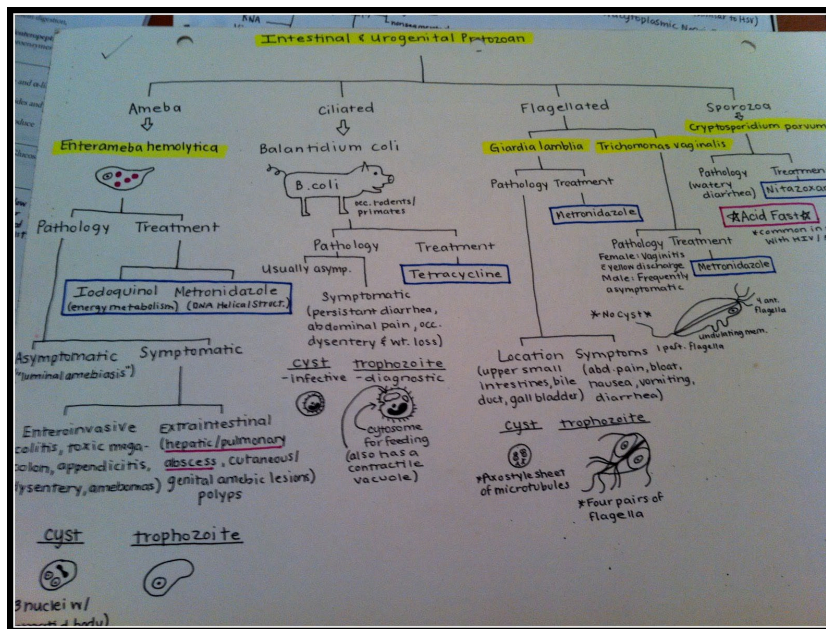 Intestinal & Urogenital Protozoan
Ameba
Enterameba hemolytica
Pathology
Treatment
Iodoquinol
(energy metabolism)
Metronidazole
(DNA Helical Struct.)
Asymptomatic
"luminal amebiasis")
Symptomatic
Enteroinvasive
colitis, toxic mega-
colon, appendicitis,
dysentery, amebomas)
Extraintestinal
(hepatic/pulmonary
abscess, cutaneous/
genital amebic lesions)
polyps
cyst
trophozoite
3 nuclei w/
body)
Ciliated
Balantidium coli
B.coli
occ. rodents/
primates
Pathology
Treatment
Tetracycline
Usually asymp.
Symptomatic
(persistant diarrhea,
abdominal pain, occ.
dysentery & wt. loss)
cyst
-infective
trophozoite
-diagnostic
cytosome
for feeding
(also has a
contractile
vacuole)
Flagellated
Giardia lamblia
Pathology
Treatment
Metronidazole
Location
(upper small
intestines, bile
duct, gall bladder)
Symptoms
(abd. pain, bloat,
nausea, vomiting,
diarrhea)
cyst
*Axostyle sheet
of microtubules
trophozoite
*Four pairs of
flagella
Trichomonas vaginalis
Pathology
Female: Vaginitis
& yellow discharge
Male: Frequently
asymptomatic
Treatment
Metronidazole
*No Cyst*
4 ant.
flagella
undulating mem.
1 post. flagella
Sporozoa
Cryptosporidium parvum
Pathology
(watery
diarrhea)
Treatmen
Nitazoxan
☆Acid Fast☆
*common in
with HIV/
RNA